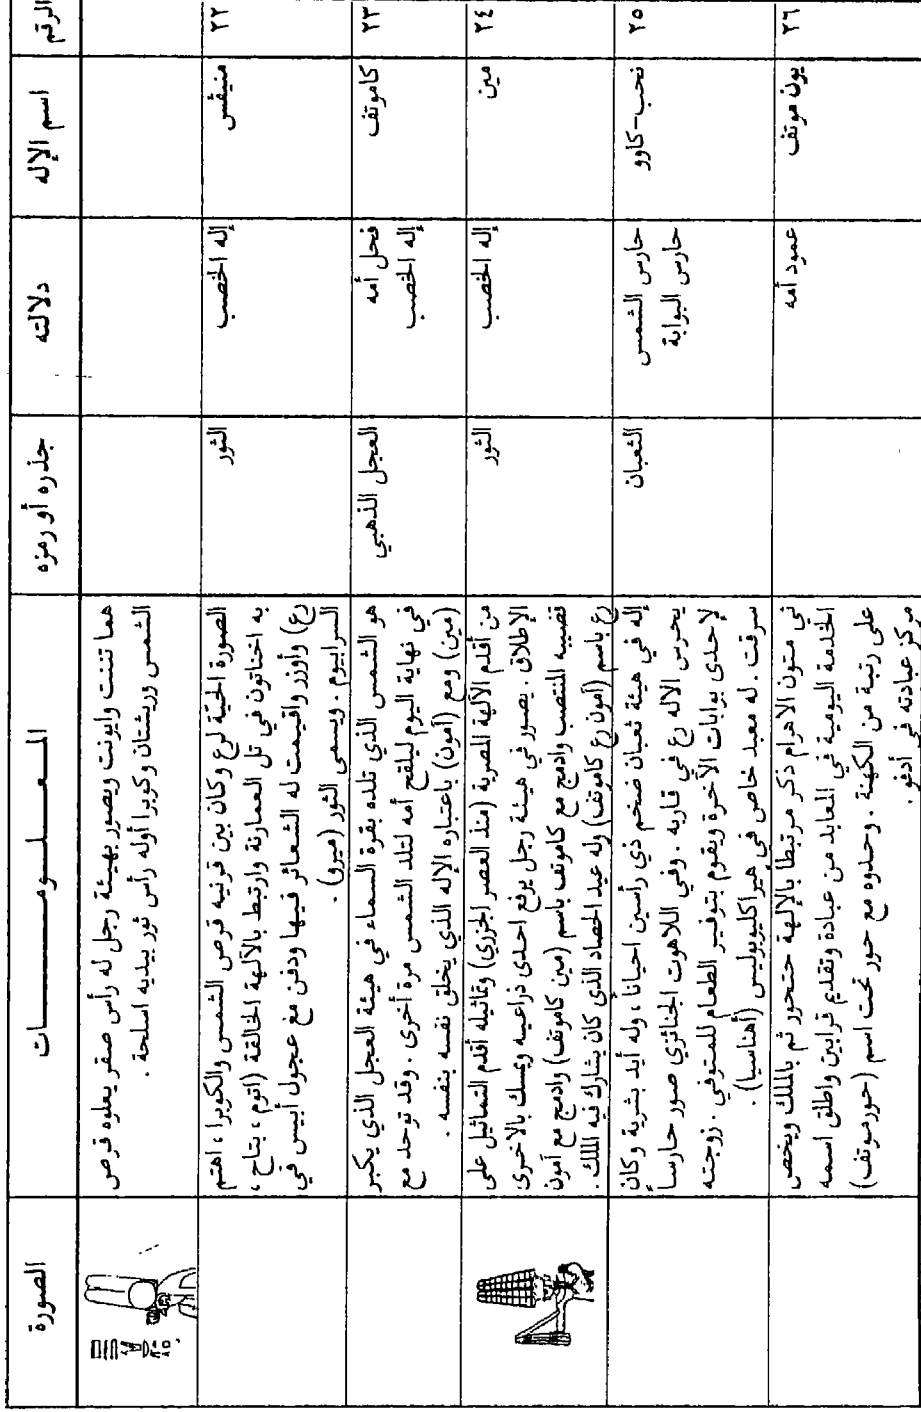 الرقم
اسم الإله
دلالته
جذره أو رمزه
المعلومات
الصورة
هما تننت وايونت ويصور بهيئة رجل له رأس صقر يعلوه قرص
الشمس وريشتان وكوبرا أوله رأس ثور بيديه اسلحة .
٢٢
منيفس
إله الخصب
الثور
الصورة الحيّة لرع وكان بين قرنيه قرص الشمس والكوبرا ، اهتم
به اختاتون في تل العمارنة وارتبط بالآلهة الخالقة (اتوم ، بتاح ،
رع) وأوزر واقيمت له الشعائر فيها ودفن مع عجول أبيس في
السرابيوم . ويسمى الثور (ميرو) .
٢٣
كاموتف
فحل أمه
إله الخصب
العجل الذهبي
هو الشمس الذي تلده بقرة السماء في هيئة العجل الذي يكبر
في نهاية اليوم ليلقح أمه لتلد الشمس مرة أخرى . وقد توحد مع
(مين) ومع (آمون) باعتباره الإله الذي يخلق نفسه بنفسه .
٢٤
مين
إله الخصب
الثور
من أقدم الآلهة المصرية (منذ العصر الجزري) وتماثيله أقدم التماثيل على
الإطلاق . يصور في هيئة رجل يرفع احدى ذراعيه ويمسك بالاخرى
قضيبه المنتصب وادمج مع كاموتف باسم (مين كاموتف) وادمج مع آمون
رع باسم (آمون رع كاموتف) وله عيد الحصاد الذي كان يشارك فيه الملك .
٢٥
نحب-كاوو
حارس الشمس
حارس البوابة
الثعبان
إله في هيئة ثعبان ضخم ذي رأسين احياناً ، وله أيد بشرية وكان
يحرس الاله رع في قاربه . وفي اللاهوت الجنائزي صور حارساً
لإحدى بوابات الآخرة ويقوم بتوفير الطعام للمتوفي . زوجته
سرقت . له معبد خاص في هيراكليوبوليس (أهناسيا) .
٢٦
يون موتف
عمود أمه
في متون الاهرام ذكر مرتبطا بالإلهة حتحور ثم بالملك ويختص
الخدمة اليومية في المعابد من عبادة وتقديم قرابين واطلق اسمه
على رتبة من الكهنة . وحدوه مع حور تحت اسم (حورموتف)
مركز عبادته في أدفو .